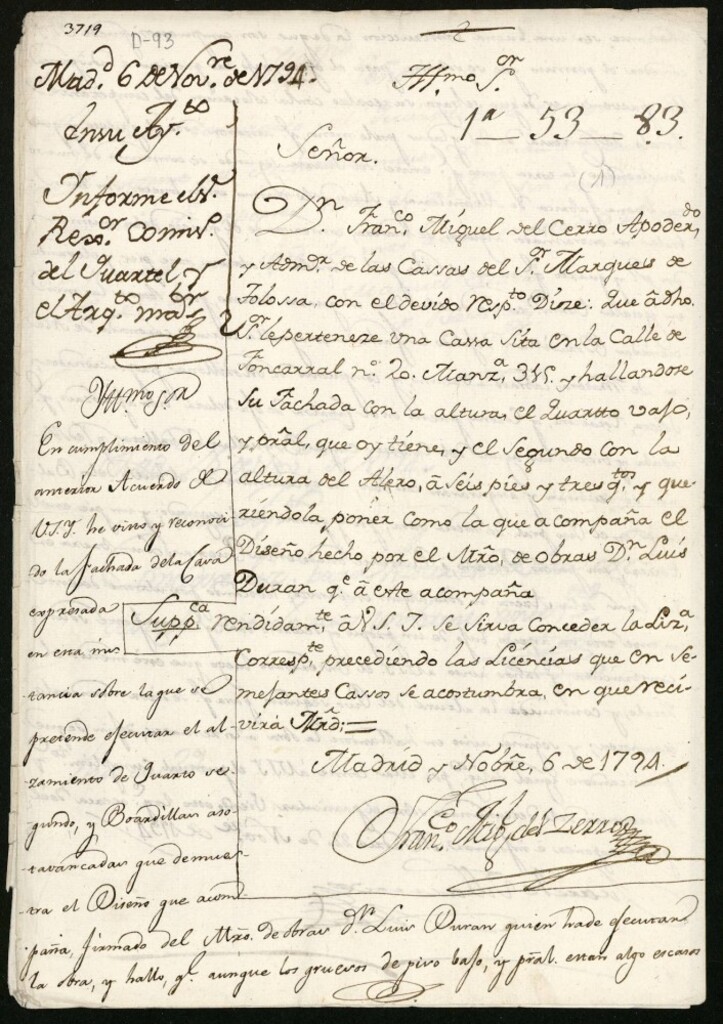 3719
D-93
Mad.d 6 de Nov.re de 1794.
Ensu Ay.to
Informe el S.
Rex.or Comis.
del Quartel y
el Arq.to ma.or
Yll.mo S.or
1a 53 83.
(1)
Señor.
Dn. Fran.co Miguel del Cerro Apoder.do
y Adm.r de las Cassas del S.or Marques de
Tolossa, con el devido resp.to Dize: Que â dho
S.or le perteneze una Cassa sita en la Calle de
Foncarral n.o 20. Manz.a 345. y hallandose
su Fachada con la altura, el Quartto vajo,
y pral, que oy tiene, y el segundo con la
altura del Alero, â seis pies y tres q.tos, y que-
riéndola, poner como la que acompaña el
Diseño hecho por el Mro, de obras Dn. Luis
Duran q.e â este acompaña
Supp.ca rendidam.te â V.S.I. se sirva conceder la Liz.a
Corresp.te precediendo las Licencias que en se-
mejantes Cassos se acostumbra, en que reci-
virá Mrd;=
Madrid y Nobre, 6 de 1794.
Fran.co Mig.l del Zerro
Yll.mo S.or
En cumplimiento del
anterior Acuerdo de
V.S.Y. he visto y reconoci
do la Fachada dela Casa
expresada
en esta ins
tancia sobre la que se
pretende ejecutar el al-
zamiento de Quarto se-
gundo, y Boardillas aso-
tavancadas que demues-
tra el Diseño que acom
paña, firmado del Mro. de obras Dn. Luis Duran quien ha de ejecutar
la obra, y hallo, q.e aunque los gruesos de piso bajo, y pral. estan algo escasos